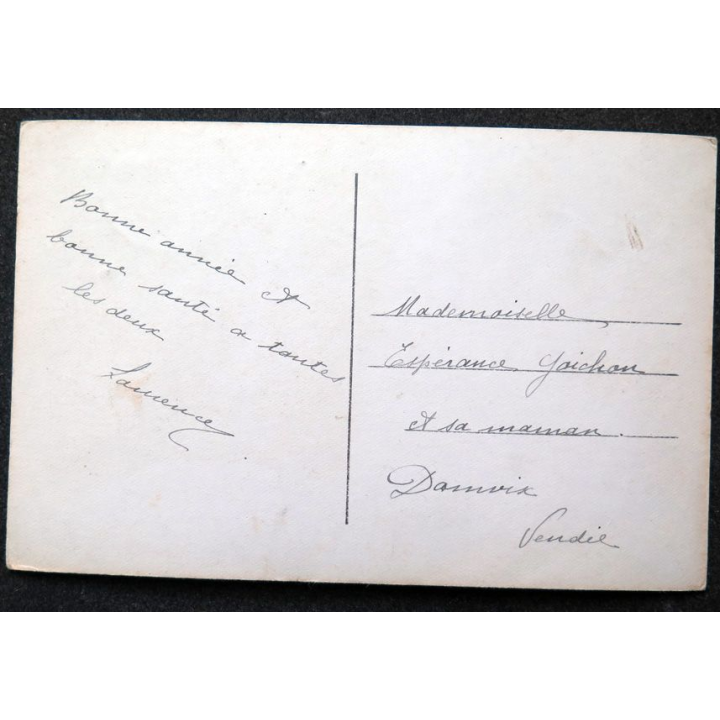 Bonne année et
bonne santé a toutes
les deux
Laurence
Mademoiselle
Espérance Goichon
et sa maman.
Damvix
Vendée